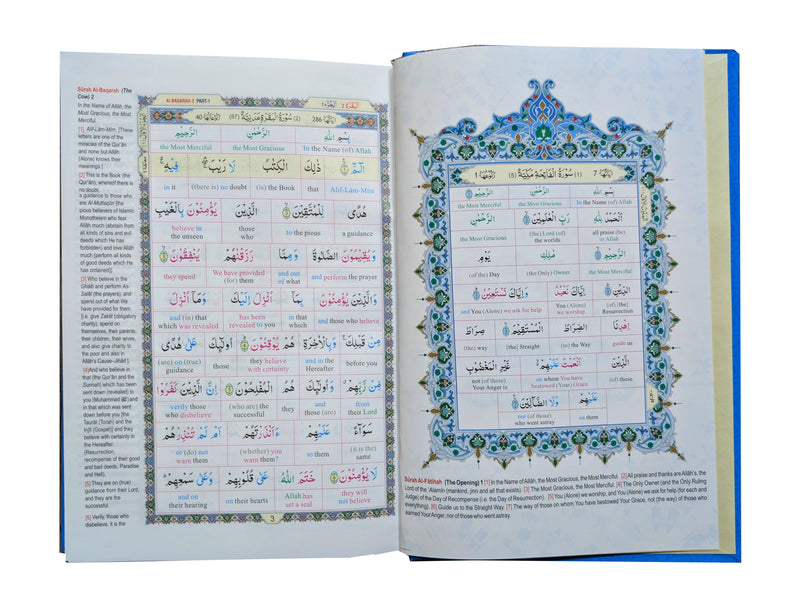 اٰيَاتُهَا 7 (1) سُوْرَةُ الْفَاتِحَةِ مَكِّيَّةٌ (5) رُكُوْعُهَا 1
بِسْمِ اللّٰهِ الرَّحْمٰنِ الرَّحِيْمِ
the Most Merciful the Most Gracious In the Name (of) Allah
اَلْحَمْدُ لِلّٰهِ رَبِّ الْعٰلَمِيْنَ الرَّحْمٰنِ
the Most Gracious (the) Lord (of) the worlds all praise (be) to Allah
الرَّحِيْمِ مٰلِكِ يَوْمِ
(of) the Day (the Only) Owner the Most Merciful
الدِّيْنِ اِيَّاكَ نَعْبُدُ وَاِيَّاكَ نَسْتَعِيْنُ
and You (Alone) we ask for help You (Alone) we worship (of) [the] Resurrection
اِهْدِنَا الصِّرَاطَ الْمُسْتَقِيْمَ صِرَاطَ
(the) way [the] Straight (to) the Way guide us
الَّذِيْنَ اَنْعَمْتَ عَلَيْهِمْ غَيْرِ الْمَغْضُوْبِ
not (of) those Your Anger is on whom You have bestowed (Your) Grace (of) those
عَلَيْهِمْ وَلَا الضَّآلِّيْنَ
not (of) those who went astray on them
Sûrah Al-Fâtihah (The Opening) 1 [1] In the Name of Allâh, the Most Gracious, the Most Merciful. [2] All praise and thanks are Allâh's, the
Lord of the 'Alamîn (mankind, jinn and all that exists). [3] The Most Gracious, the Most Merciful. [4] The Only Owner (and the Only Ruling
Judge) of the Day of Recompense (i.e. the Day of Resurrection). [5] You (Alone) we worship, and You (Alone) we ask for help (for each and
everything). [6] Guide us to the Straight Way. [7] The way of those on whom You have bestowed Your Grace, not (the way) of those who
earned Your Anger, nor of those who went astray.
Al-BAQARAH-2 PART-1 الٓمّٓ 1 الْبَقَرَة 2
اٰيَاتُهَا 286 (2) سُوْرَةُ الْبَقَرَةِ مَدَنِيَّةٌ (87) رُكُوْعَاتُهَا 40
بِسْمِ اللّٰهِ الرَّحْمٰنِ الرَّحِيْمِ
the Most Merciful the Most Gracious In the Name (of) Allah
الٓمّٓ ذٰلِكَ الْكِتٰبُ لَا رَيْبَ فِيْهِ
in it (there is) no doubt (is) the Book that Alif-Lâm-Mîm
هُدًى لِّلْمُتَّقِيْنَ الَّذِيْنَ يُؤْمِنُوْنَ بِالْغَيْبِ
believe in the unseen those who to the pious a guidance
وَيُقِيْمُوْنَ الصَّلٰوةَ وَمِمَّا رَزَقْنٰهُمْ يُنْفِقُوْنَ
they spend We have provided (for) them and out of what and perform the prayer
وَالَّذِيْنَ يُؤْمِنُوْنَ بِمَآ اُنْزِلَ اِلَيْكَ وَمَآ اُنْزِلَ
and (in) that which was revealed has been revealed to you in that and those who believe
مِنْ قَبْلِكَ وَبِالْاٰخِرَةِ هُمْ يُوْقِنُوْنَ اُولٰٓئِكَ عَلٰى هُدًى
(are) on (true) guidance those they believe with certainty and in the Hereafter before you
مِّنْ رَّبِّهِمْ وَاُولٰٓئِكَ هُمُ الْمُفْلِحُوْنَ اِنَّ الَّذِيْنَ كَفَرُوْا
verily those who disbelieve (who are) the successful they and those (are) from their Lord
سَوَآءٌ عَلَيْهِمْ ءَاَنْذَرْتَهُمْ اَمْ لَمْ تُنْذِرْهُمْ
or (do) not warn them (whether) you warn them? to them (it is the) same
لَا يُؤْمِنُوْنَ خَتَمَ اللّٰهُ عَلٰى قُلُوْبِهِمْ وَعَلٰى سَمْعِهِمْ
and on their hearing on their hearts Allah has set a seal they will not believe
3
Sûrah Al-Baqarah (The
Cow) 2
In the Name of Allâh, the
Most Gracious, the Most
Merciful.
[1] Alif-Lâm-Mîm. [These
letters are one of the
miracles of the Qur'ân
and none but Allâh
(Alone) knows their
meanings.]
[2] This is the Book (the
Qur'ân), whereof there is
no doubt,
a guidance to those who
are Al-Muttaqûn [the
pious believers of Islamic
Monotheism who fear
Allâh much (abstain from
all kinds of sins and evil
deeds which He has
forbidden) and love Allâh
much (perform all kinds
of good deeds which He
has ordained)].
[3] Who believe in the
Ghaib and perform As-
Salât (the prayers), and
spend out of what We
have provided for them
[i.e. give Zakât (obligatory
charity), spend on
themselves, their parents,
their children, their wives,
and also give charity to
the poor and also in
Allâh's Cause-Jihâd].
[4] And who believe in that
which (the Qur'ân and the
Sunnah) which has been
sent down (revealed) to
you (Muhammad ﷺ) and
in that which was sent
down before you [the
Taurât (Torah) and the
Injîl (Gospel)] and they
believe with certainty in
the Hereafter.
(Resurrection,
recompense of their good
and bad deeds, Paradise
and Hell).
[5] They are on (true)
guidance from their Lord,
and they are the
successful.
[6] Verily, those who
disbelieve, it is the